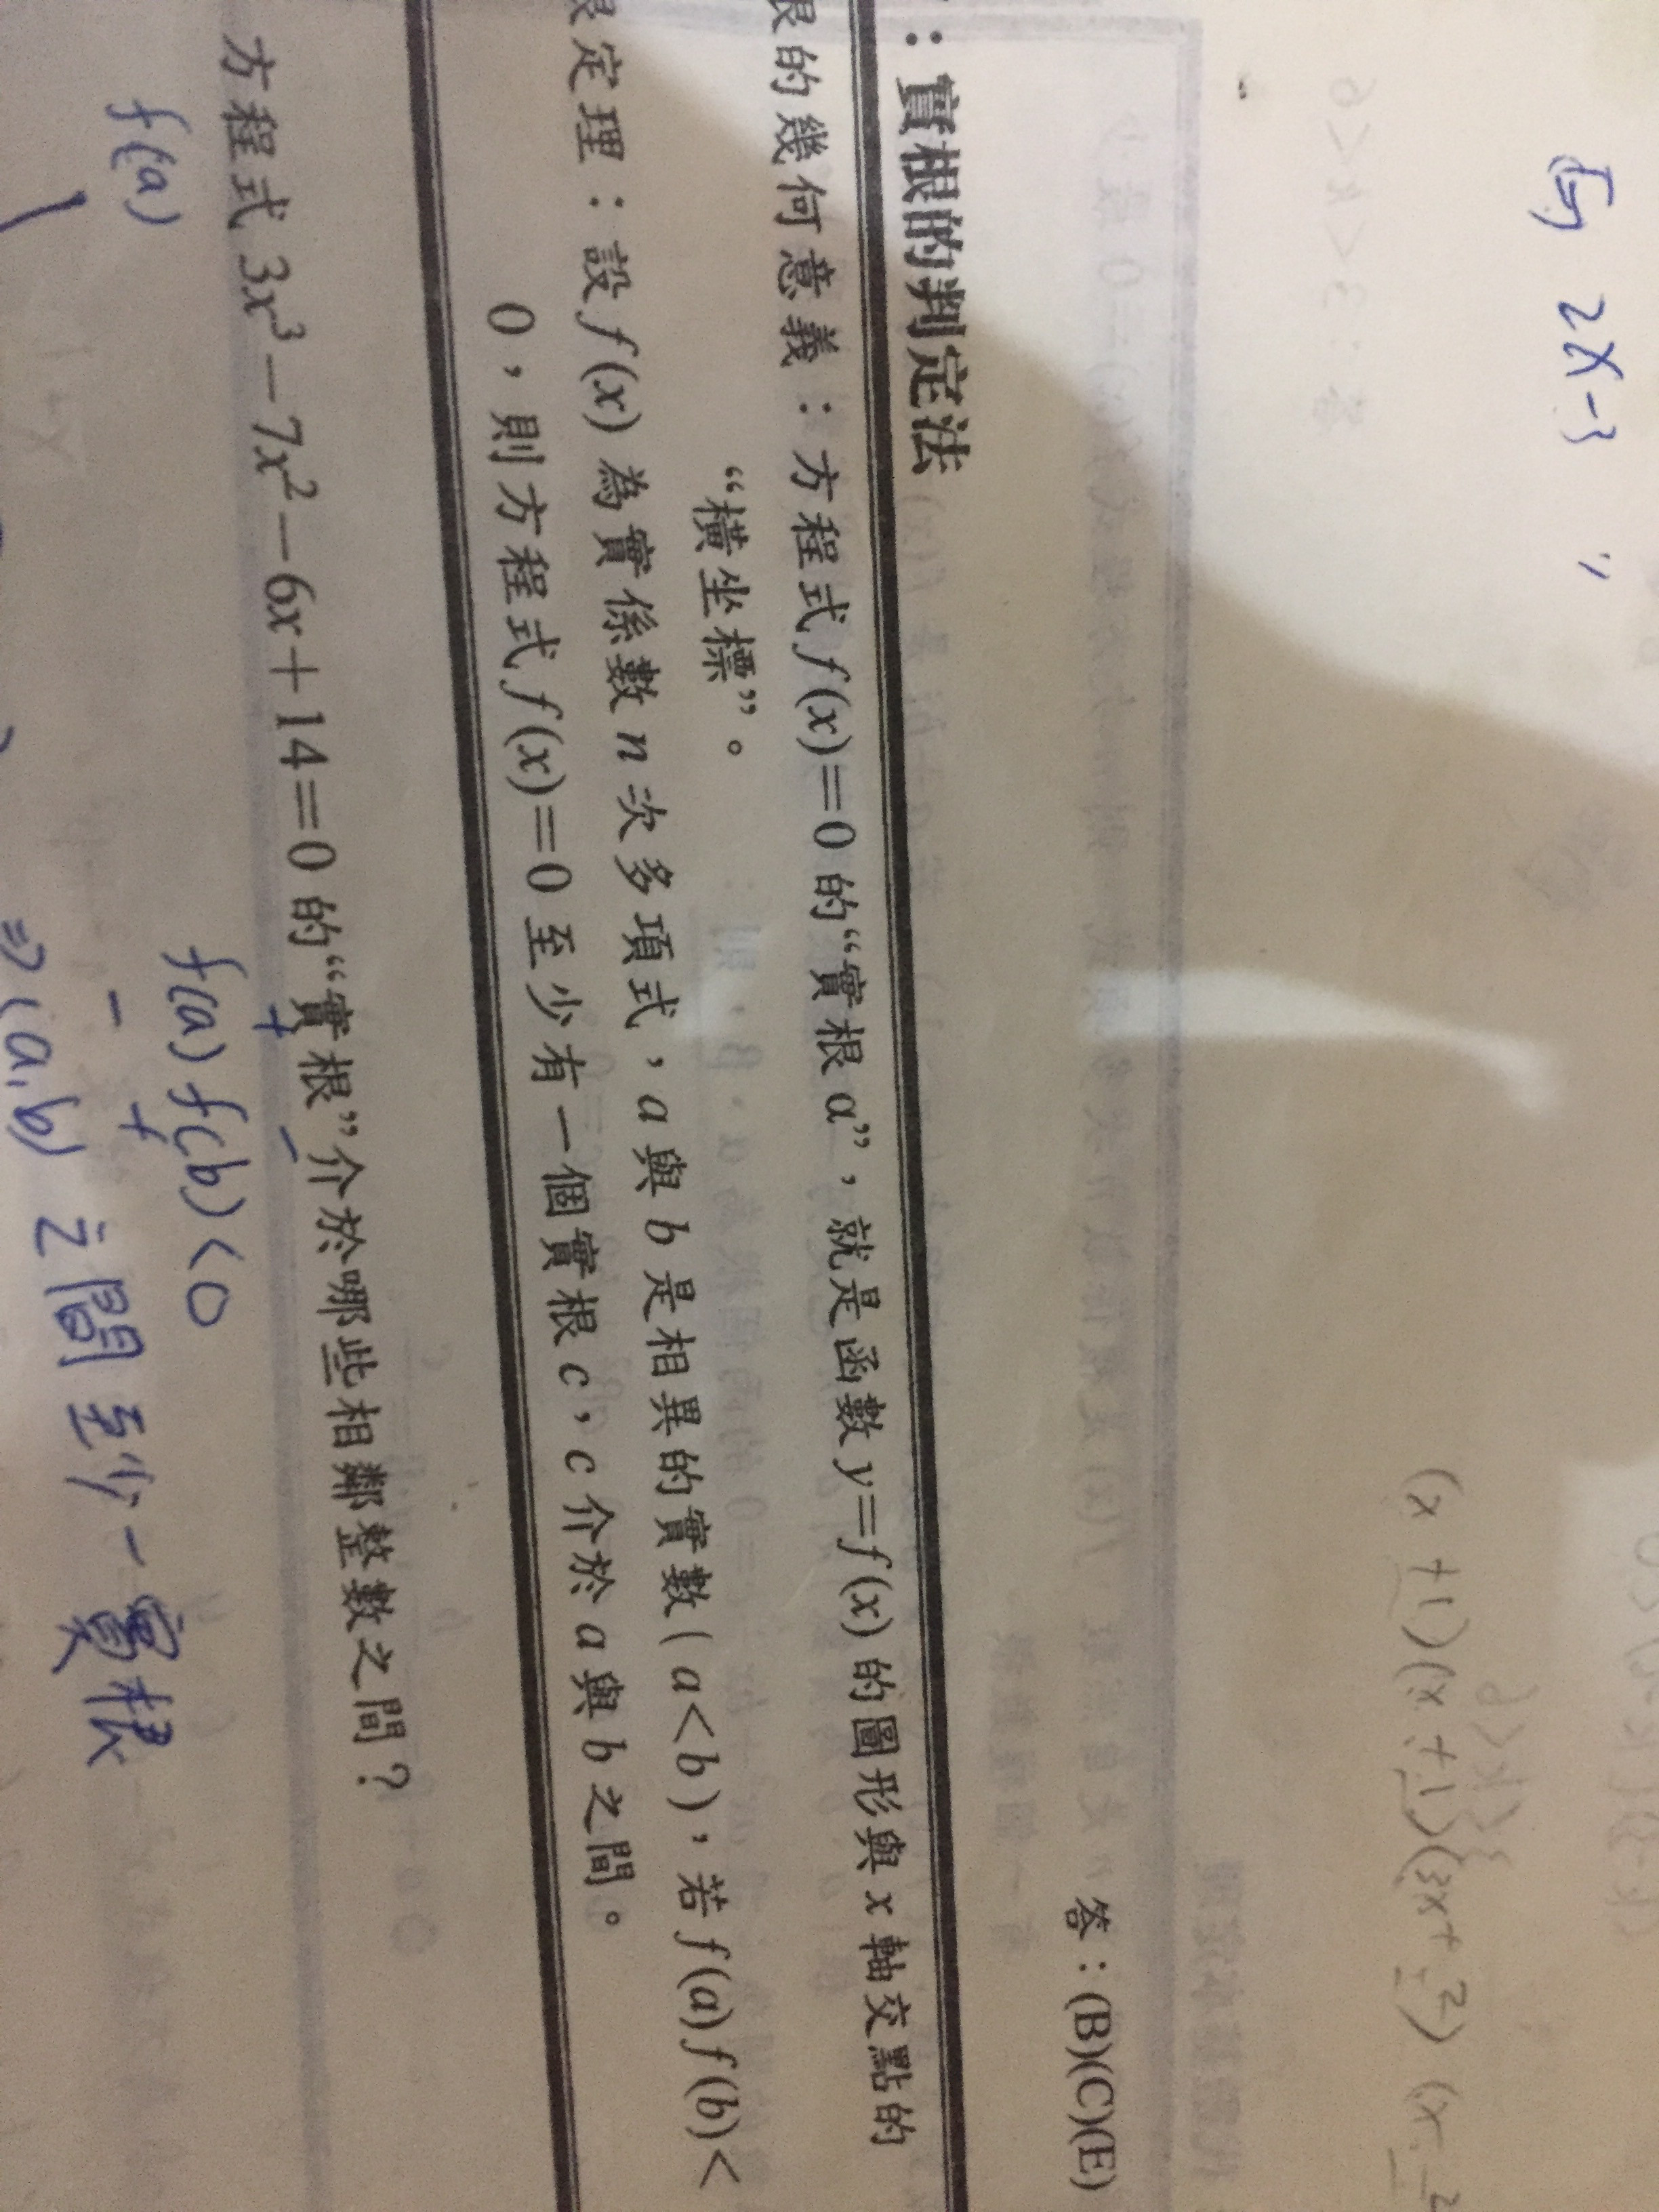 与 2x-3
(x+1)(x+1)(3x+2)(x-2
答：(B)(C)(E)
：實根的判定法
的幾何意義：方程式 f(x)=0 的“實根 α”，就是函數 y=f(x) 的圖形與 x 軸交點的
“橫坐標”。
定理：設 f(x) 為實係數 n 次多項式，a 與 b 是相異的實數(a<b)，若 f(a)f(b)<
0，則方程式 f(x)=0 至少有一個實根 c，c 介於 a 與 b 之間。
方程式 3x³-7x²-6x+14=0 的“實根”介於哪些相鄰整數之間？
+ -
f(a) f(a)f(b)<0
- +
⇒(a,b)之間至少一實根